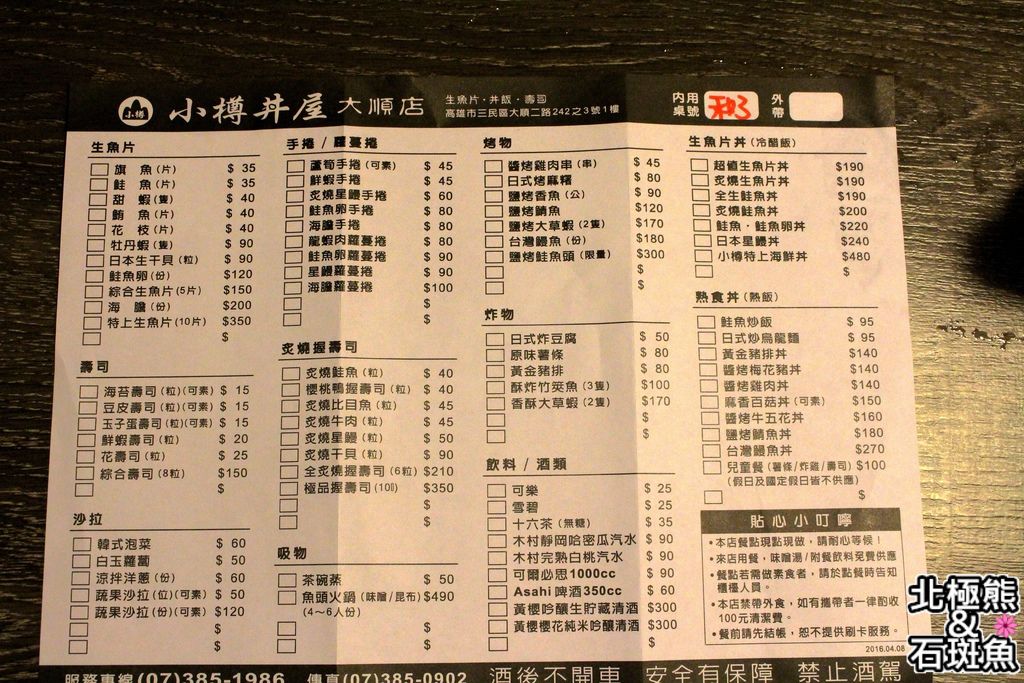 小樽
小樽丼屋 大順店
生魚片・丼飯・壽司
高雄市三民區大順二路242之3號1樓
內用桌號
外帶
生魚片
旗 魚(片) $ 35
鮭 魚(片) $ 35
甜 蝦(隻) $ 40
鮪 魚(片) $ 40
花 枝(片) $ 40
牡丹蝦(隻) $ 90
日本生干貝(粒) $ 90
鮭魚卵(份) $120
綜合生魚片(5片) $150
海 膽(份) $200
特上生魚片(10片) $350
$
壽司
海苔壽司(粒)(可素) $ 15
豆皮壽司(粒)(可素) $ 15
玉子蛋壽司(粒)(可素) $ 15
鮮蝦壽司(粒) $ 20
花壽司(粒) $ 25
綜合壽司(8粒) $150
$
沙拉
韓式泡菜 $ 60
白玉蘿蔔 $ 50
涼拌洋蔥(份) $ 60
蔬果沙拉(位)(可素) $ 50
蔬果沙拉(份)(可素) $120
$
$
手捲 / 蘿蔓捲
蘆筍手捲(可素) $ 45
鮮蝦手捲 $ 45
炙燒星鰻手捲 $ 60
鮭魚卵手捲 $ 80
海膽手捲 $ 80
龍蝦肉蘿蔓捲 $ 80
鮭魚卵蘿蔓捲 $ 90
星鰻蘿蔓捲 $ 90
海膽蘿蔓捲 $100
$
$
炙燒握壽司
炙燒鮭魚(粒) $ 40
櫻桃鴨握壽司(粒) $ 40
炙燒比目魚(粒) $ 45
炙燒牛肉(粒) $ 45
炙燒星鰻(粒) $ 50
炙燒干貝(粒) $ 90
全炙燒握壽司(6粒) $210
極品握壽司 $350
$
$
吸物
茶碗蒸 $ 50
魚頭火鍋(味噌/昆布) $490
(4～6人份)
$
$
$
烤物
醬烤雞肉串(串) $ 45
日式烤麻糬 $ 80
鹽烤香魚(公) $ 90
鹽烤鯖魚 $120
鹽烤大草蝦(2隻) $170
台灣鰻魚(份) $180
鹽烤鮭魚頭(限量) $300
$
$
炸物
日式炸豆腐 $ 50
原味薯條 $ 80
黃金豬排 $ 80
酥炸竹筴魚(3隻) $100
香酥大草蝦(2隻) $170
$
$
飲料 / 酒類
可樂 $ 25
雪碧 $ 25
十六茶(無糖) $ 35
木村靜岡哈密瓜汽水 $ 90
木村完熟白桃汽水 $ 90
可爾必思1000cc $ 90
Asahi 啤酒350cc $ 60
黃櫻吟釀生貯藏清酒 $300
黃櫻櫻花純米吟釀清酒 $300
$
生魚片丼(冷醋飯)
超值生魚片丼 $190
炙燒生魚片丼 $190
全生鮭魚丼 $190
炙燒鮭魚丼 $200
鮭魚・鮭魚卵丼 $220
日本星鰻丼 $240
小樽特上海鮮丼 $480
$
熟食丼(熟飯)
鮭魚炒飯 $ 95
日式炒烏龍麵 $ 95
黃金豬排丼 $140
醬烤梅花豬丼 $140
醬烤雞肉丼 $140
麻香百菇丼(可素) $150
醬烤牛五花丼 $160
鹽烤鯖魚丼 $180
台灣鰻魚丼 $270
兒童餐(薯條/炸雞/壽司) $100
(假日及國定假日皆不供應)
$
貼心小叮嚀
•本店餐點現點現做，請耐心等候！
•來店用餐，味噌湯/附餐飲料免費供應
•餐點若需做素食者，請於點餐時告知櫃檯人員。
•本店禁帶外食，如有攜帶者一律酌收100元清潔費。
•餐前請先結帳，恕不提供刷卡服務。
2016.04.08
服務專線(07)385-1986 傳真(07)385-0902 酒後不開車 安全有保障 禁止酒駕
北極熊
&
石斑魚